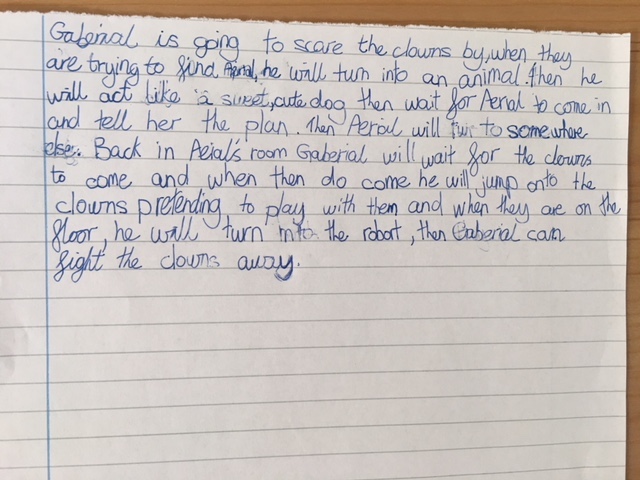 Gaberial is going to scare the clowns by, when they
are trying to find Aerial, he will turn into an animal. Then he
will act like a sweet, cute dog then wait for Aerial to come in
and tell her the plan. Then Aerial will to somewhere
else. Back in Aeial's room Gaberial will wait for the clowns
to come and when then do come he will jump onto the
clowns pretending to play with them and when they are on the
floor, he will turn into the robot, then Gaberial can
fight the clowns away.